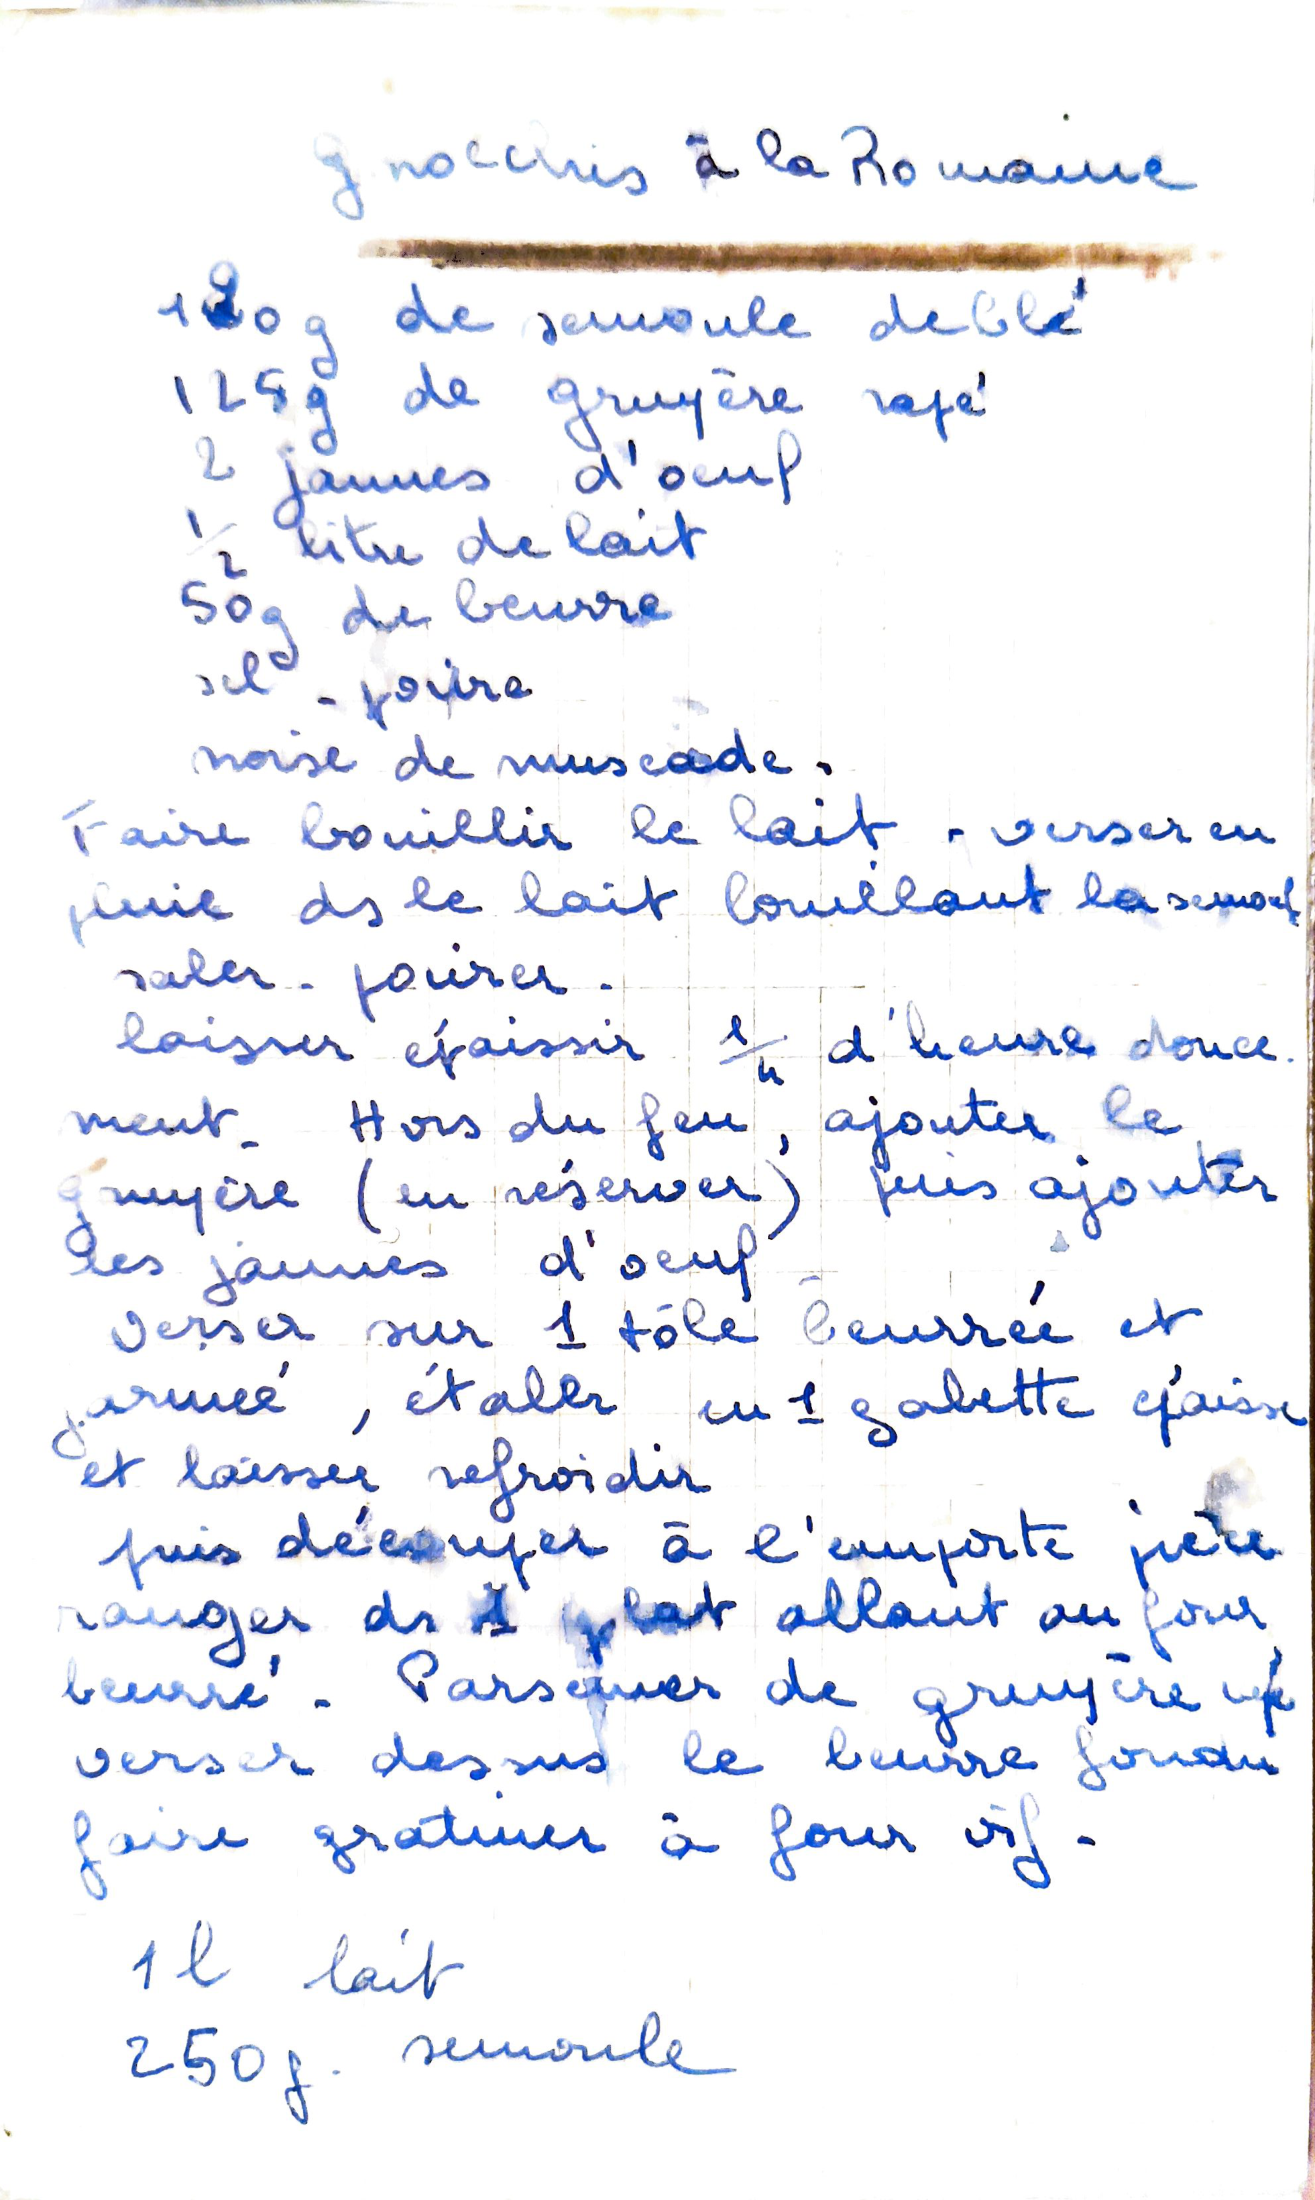 gnocchis à la Romaine
g de semoule de blé
125g de gruyère rapé
2 jaunes d'oeuf
1/2 litre de lait
50g de beurre
sel - poivre
noise de muscade.
Faire bouillir le lait - verser en
pluie ds le lait bouillant la semoul
saler - poivrer.
laisser épaissir 1/4 d'heure douce-
ment - Hors du feu, ajouter le
gruyère (en réserver) puis ajouter
les jaunes d'oeuf
verser sur 1 tôle beurrée et
, étaler en 1 galette épaisse
et laisser refroidir
puis découper à l'emporte pièce
ranger ds 1 plat allant au four
beurré - Parsemer de gruyère rapé
verser dessus le beurre fondu
faire gratiner à four vif -
1 l lait
250g. semoule